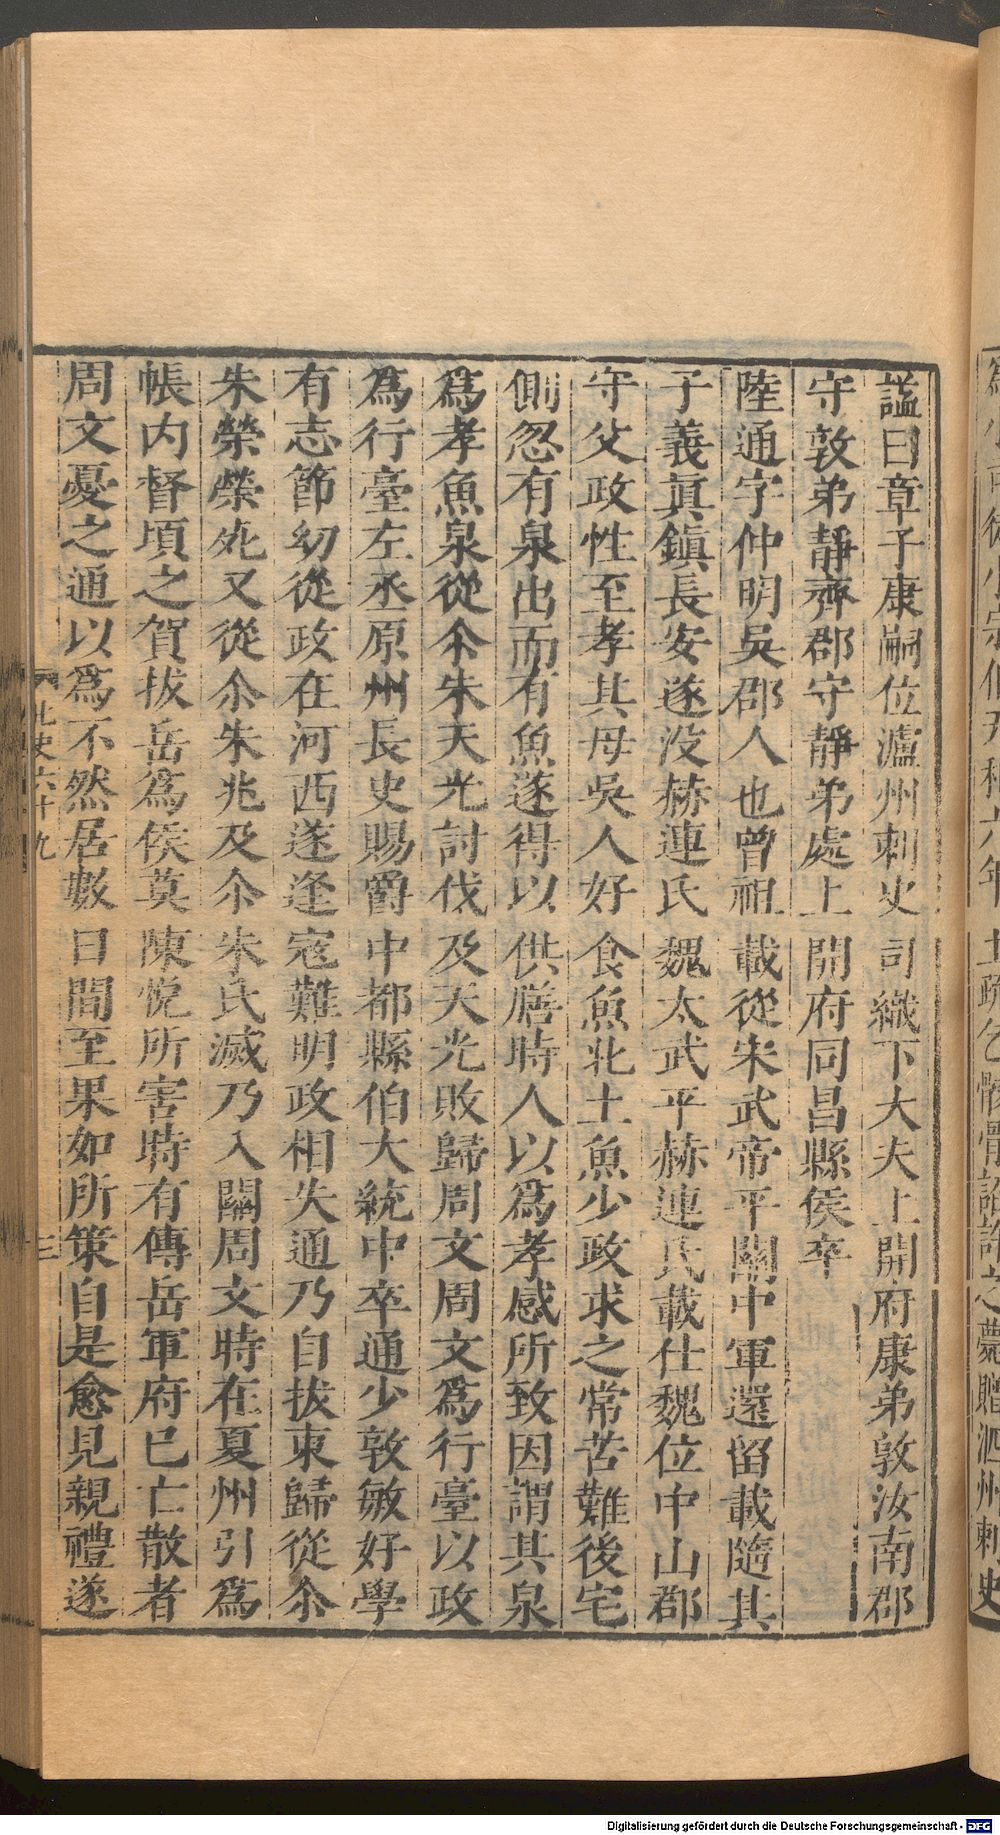 諡曰章子康嗣位瀘州刺史司織下大夫上開府康弟敦汝南郡
守敦弟靜齊郡守靜弟處上開府同昌縣侯卒
陸通字仲明吳郡人也曾祖載從宋武帝平關中軍還留載隨其
子義真鎮長安遂沒赫連氏魏太武平赫連氏載仕魏位中山郡
守父政性至孝其母吳人好食魚北土魚少政求之常苦難後宅
側忽有泉出而有魚遂得以供膳時人以為孝感所致因謂其泉
為孝魚泉從尒朱天光討伐及天光敗歸周文周文為行臺以政
為行臺左丞原州長史賜爵中都縣伯大統中卒通少敦敏好學
有志節幼從政在河西遂逢寇難明政相失通乃自拔東歸從尒
朱榮榮死又從尒朱兆及尒朱氏滅乃入關周文時在夏州引為
帳内督頃之賀拔岳為侯莫陳悅所害時有傳岳軍府已亡散者
周文憂之通以為不然居數日間至果如所策自是愈見親禮遂
北史六十九
三
土疏乞骸骨詔許之薨贈泗州刺史
Digitalisierung gefördert durch die Deutsche Forschungsgemeinschaft - DFG